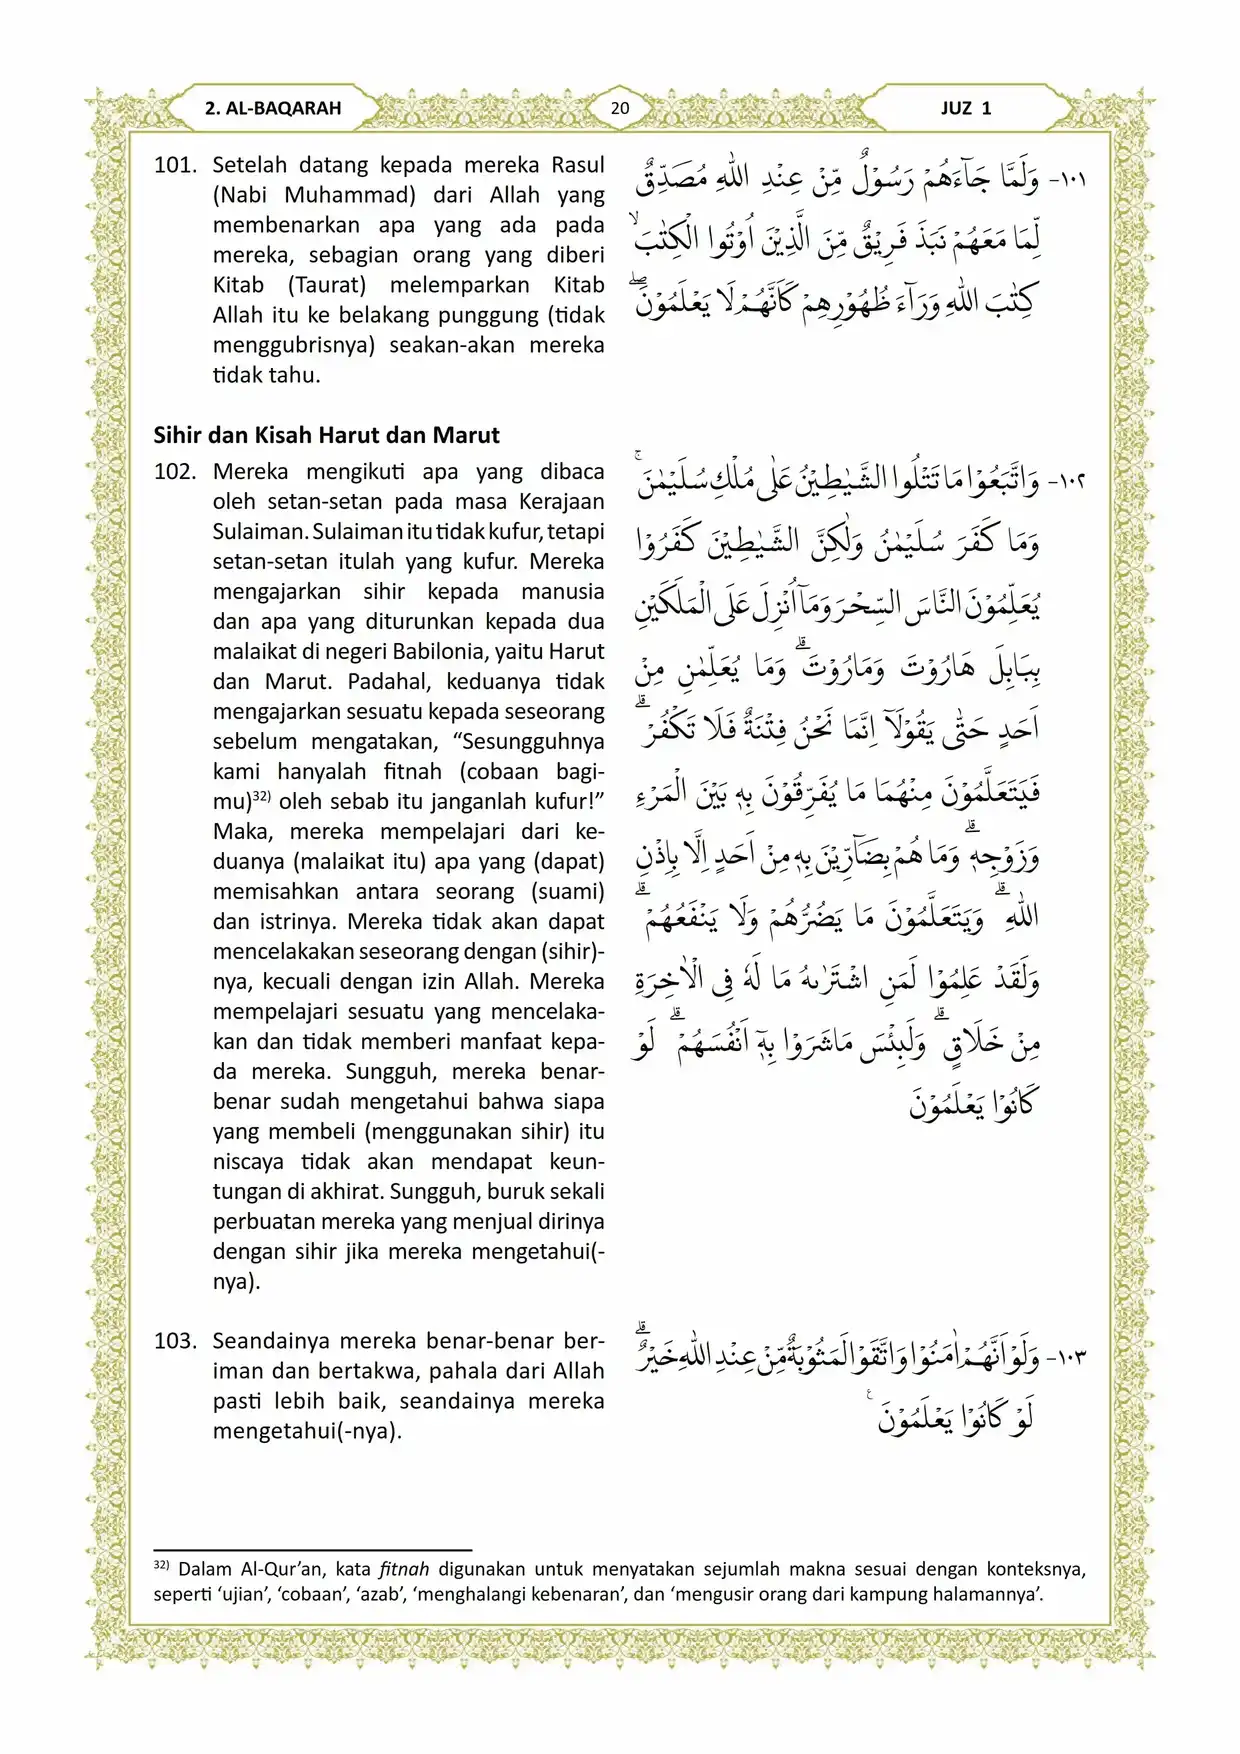 2. AL-BAQARAH
20
JUZ 1
101. Setelah datang kepada mereka Rasul
(Nabi Muhammad) dari Allah yang
membenarkan apa yang ada pada
mereka, sebagian orang yang diberi
Kitab (Taurat) melemparkan Kitab
Allah itu ke belakang punggung (tidak
menggubrisnya) seakan-akan mereka
tidak tahu.
١٠١- وَلَمَّا جَاۤءَهُمْ رَسُوْلٌ مِّنْ عِنْدِ اللّٰهِ مُصَدِّقٌ
لِّمَا مَعَهُمْ نَبَذَ فَرِيْقٌ مِّنَ الَّذِيْنَ اُوْتُوا الْكِتٰبَۙ
كِتٰبَ اللّٰهِ وَرَاۤءَ ظُهُوْرِهِمْ كَاَنَّهُمْ لَا يَعْلَمُوْنَۖ
Sihir dan Kisah Harut dan Marut
102. Mereka mengikuti apa yang dibaca
oleh setan-setan pada masa Kerajaan
Sulaiman. Sulaiman itu tidak kufur, tetapi
setan-setan itulah yang kufur. Mereka
mengajarkan sihir kepada manusia
dan apa yang diturunkan kepada dua
malaikat di negeri Babilonia, yaitu Harut
dan Marut. Padahal, keduanya tidak
mengajarkan sesuatu kepada seseorang
sebelum mengatakan, “Sesungguhnya
kami hanyalah fitnah (cobaan bagi-
mu)32) oleh sebab itu janganlah kufur!”
Maka, mereka mempelajari dari ke-
duanya (malaikat itu) apa yang (dapat)
memisahkan antara seorang (suami)
dan istrinya. Mereka tidak akan dapat
mencelakakan seseorang dengan (sihir)-
nya, kecuali dengan izin Allah. Mereka
mempelajari sesuatu yang mencelaka-
kan dan tidak memberi manfaat kepa-
da mereka. Sungguh, mereka benar-
benar sudah mengetahui bahwa siapa
yang membeli (menggunakan sihir) itu
niscaya tidak akan mendapat keun-
tungan di akhirat. Sungguh, buruk sekali
perbuatan mereka yang menjual dirinya
dengan sihir jika mereka mengetahui(-
nya).
١٠٢- وَاتَّبَعُوْا مَا تَتْلُوا الشَّيٰطِيْنُ عَلٰى مُلْكِ سُلَيْمٰنَۚ
وَمَا كَفَرَ سُلَيْمٰنُ وَلٰكِنَّ الشَّيٰطِيْنَ كَفَرُوْا
يُعَلِّمُوْنَ النَّاسَ السِّحْرَ وَمَآ اُنْزِلَ عَلَى الْمَلَكَيْنِ
بِبَابِلَ هَارُوْتَ وَمَارُوْتَۗ وَمَا يُعَلِّمٰنِ مِنْ
اَحَدٍ حَتّٰى يَقُوْلَآ اِنَّمَا نَحْنُ فِتْنَةٌ فَلَا تَكْفُرْۗ
فَيَتَعَلَّمُوْنَ مِنْهُمَا مَا يُفَرِّقُوْنَ بِهٖ بَيْنَ الْمَرْءِ
وَزَوْجِهٖۗ وَمَا هُمْ بِضَاۤرِّيْنَ بِهٖ مِنْ اَحَدٍ اِلَّا بِاِذْنِ
اللّٰهِۗ وَيَتَعَلَّمُوْنَ مَا يَضُرُّهُمْ وَلَا يَنْفَعُهُمْۗ
وَلَقَدْ عَلِمُوْا لَمَنِ اشْتَرٰىهُ مَا لَهٗ فِى الْاٰخِرَةِ
مِنْ خَلَاقٍۗ وَلَبِئْسَ مَاشَرَوْا بِهٖٓ اَنْفُسَهُمْۗ لَوْ
كَانُوْا يَعْلَمُوْنَ
103. Seandainya mereka benar-benar ber-
iman dan bertakwa, pahala dari Allah
pasti lebih baik, seandainya mereka
mengetahui(-nya).
١٠٣- وَلَوْ اَنَّهُمْ اٰمَنُوْا وَاتَّقَوْا لَمَثُوْبَةٌ مِّنْ عِنْدِ اللّٰهِ خَيْرٌۗ
لَوْ كَانُوْا يَعْلَمُوْنَ ࣖ
32) Dalam Al-Qur’an, kata fitnah digunakan untuk menyatakan sejumlah makna sesuai dengan konteksnya,
seperti ‘ujian’, ‘cobaan’, ‘azab’, ‘menghalangi kebenaran’, dan ‘mengusir orang dari kampung halamannya’.